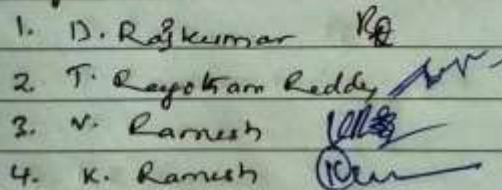 1. D. Rajkumar
2. T. Reddy
3. N. Ramesh
4. K. Ramesh